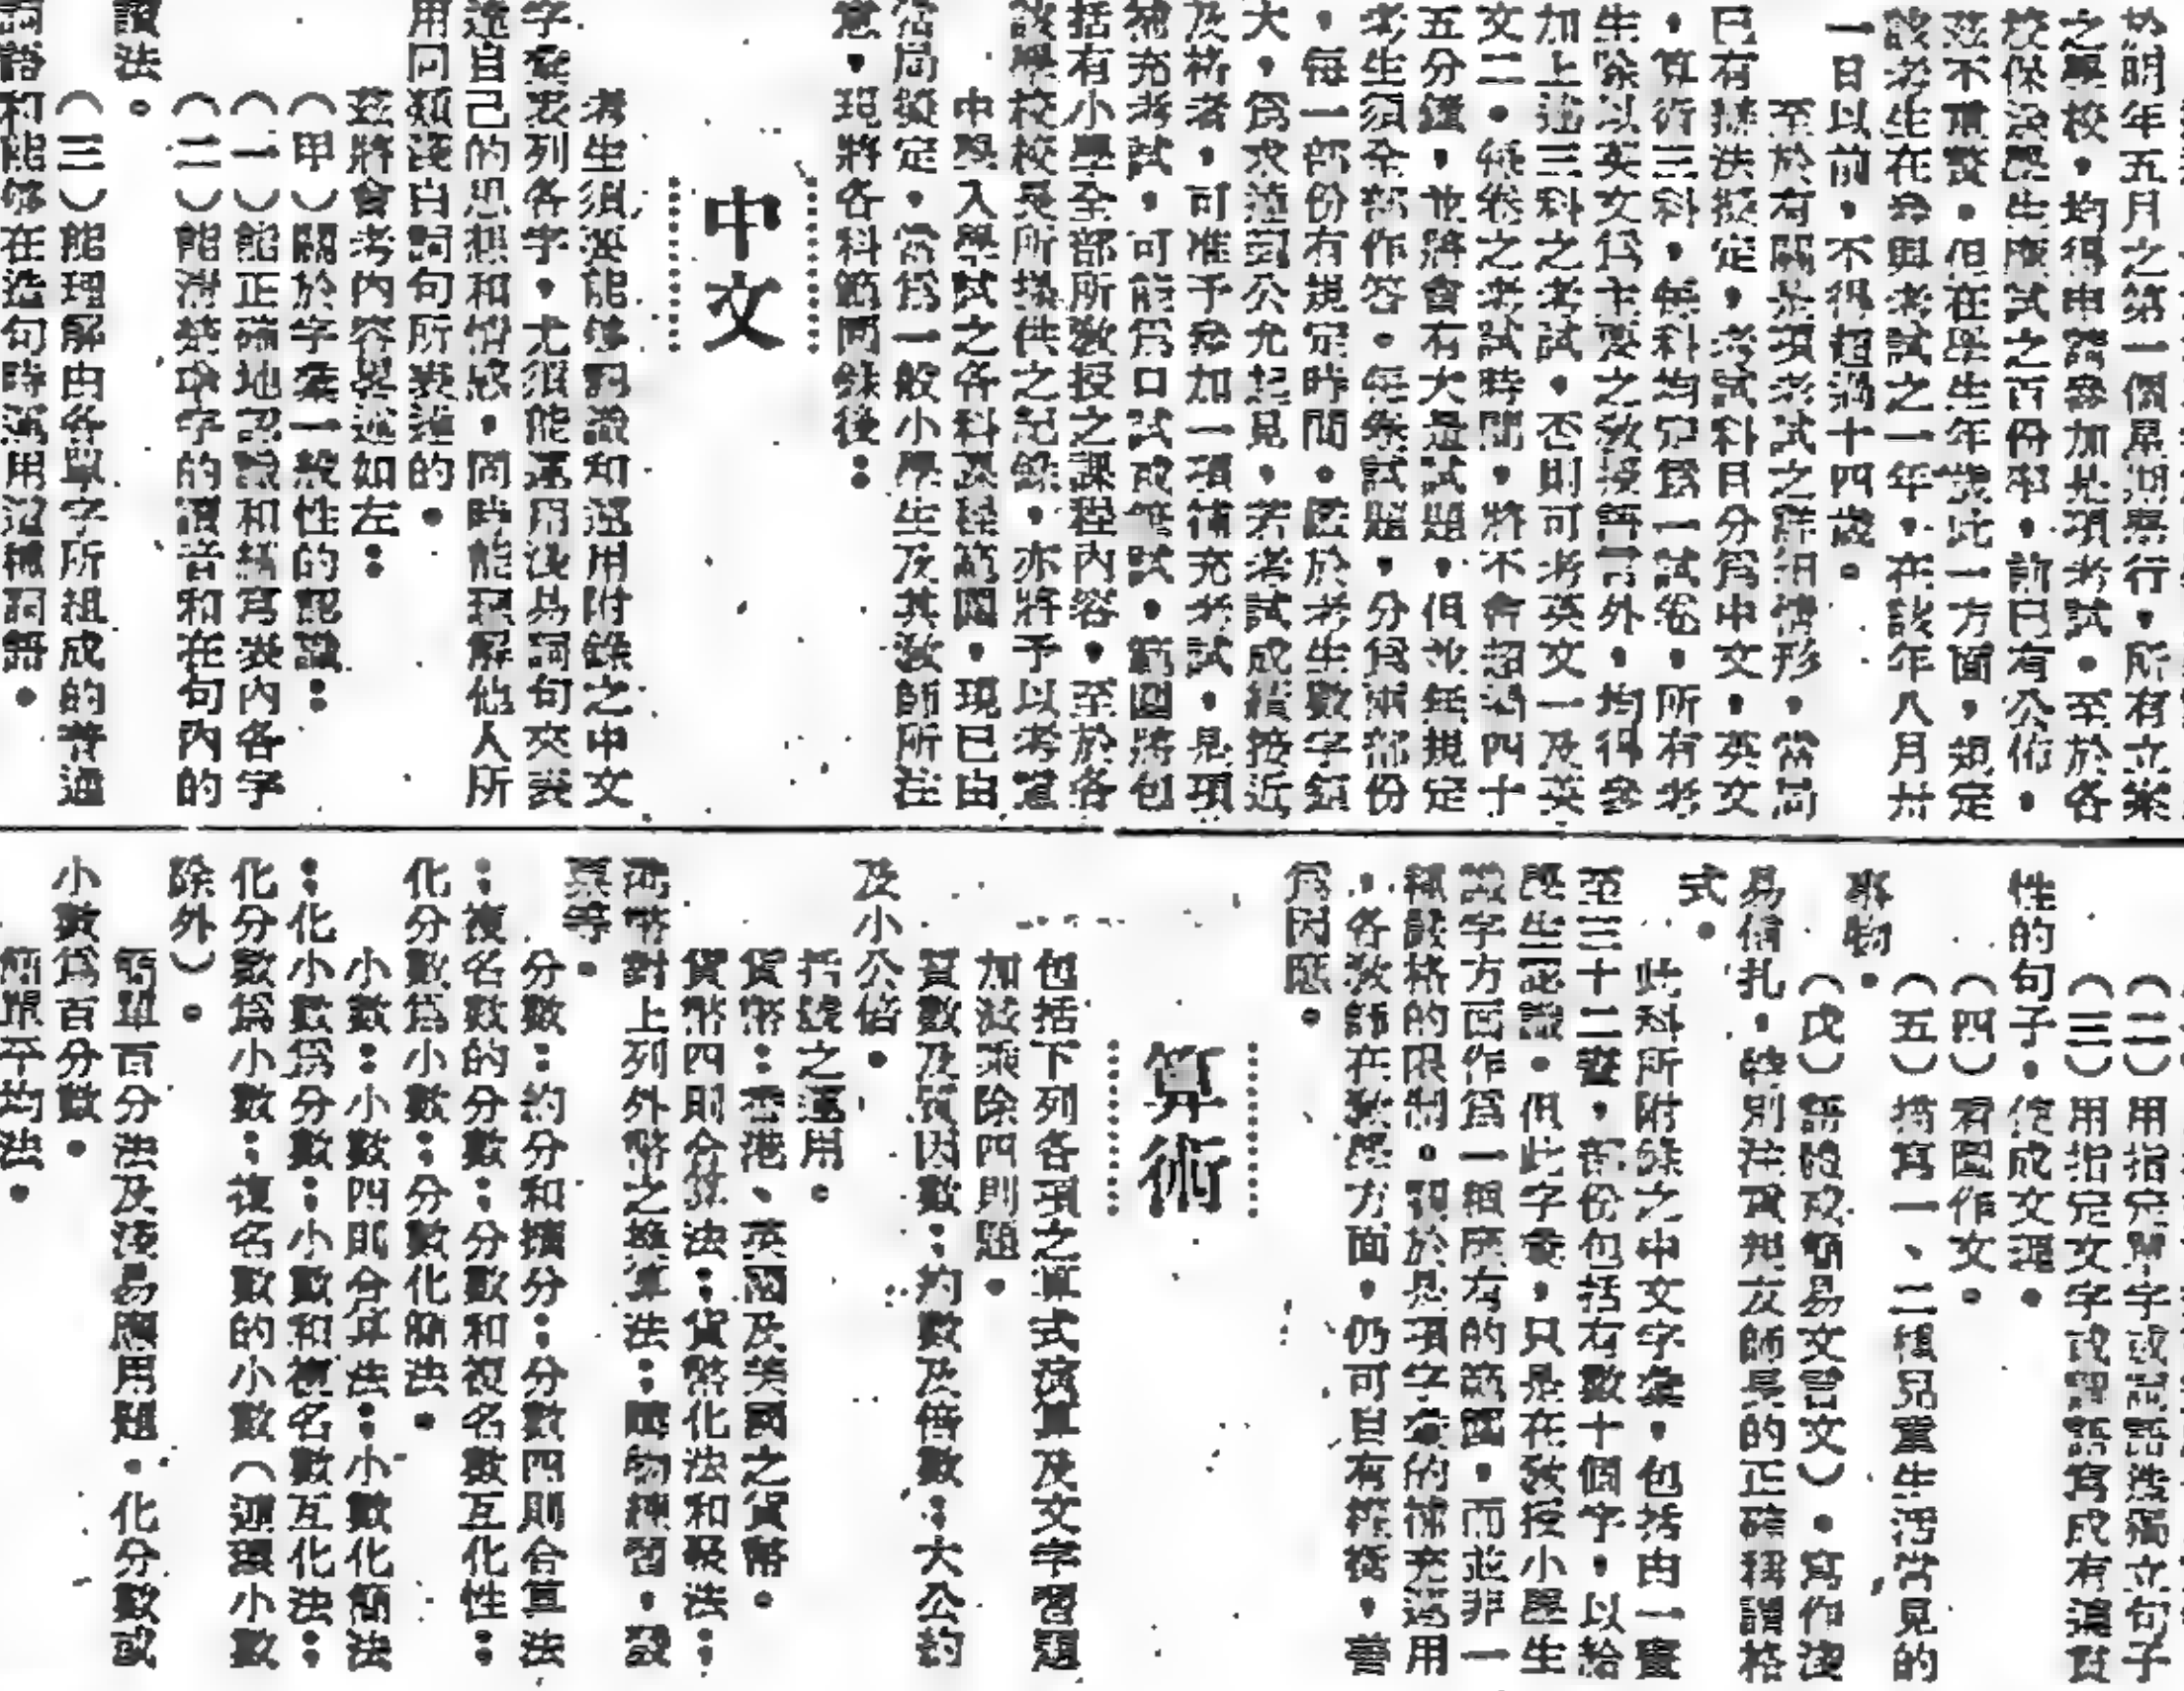 於明年五月之第一個星期舉行，所有立案
之學校，均得申請參加是項考試。至於各
校保送學生應試之百份率，前已有公佈，
茲不重贅。但在學生年歲此一方面，規定
該考生在參與考試之一年，在該年八月卅
一日以前，不得超過十四歲。
至於有關是項考試之詳細情形，當局
已有辦法擬定，考試科目分爲中文，英文
，算術三科，每科均定爲一試卷，所有考
生除以英文爲主要之教授語言外，均得參
加上述三科之考試，否則可考英文一及英
文二。每卷之考試時間，將不會超過四十
五分鐘，並將會有大量試題，但並無規定
考生須全部作答。每條試題，分爲兩部份
，每一部份有規定時間。鑑於考生數字龐
大，爲求達到公允起見，若考試成績接近
及格者，可准予參加一項補充考試，是項
補充考試，可能爲口試或筆試。範圍將包
括有小學全部所教授之課程內容，至於各
該學校校長所提供之記錄，亦將予以考慮
中學入學試之各科課程範圍，現已由
當局擬定，當爲一般小學生及其教師所注
意，現將各科範圍錄後：
中文
考生須要能够認識和運用附錄之中文
字彙表列各字，尤須能運用淺易詞句來表
達自己的思想和情感，同時能理解他人所
用同類淺白詞句所表達的。
茲將會考內容畧述如左：
（甲）關於字彙一般性的認識：
（一）能正確地認識和描寫表內各字
（二）能清楚每字的讀音和在句內的
讀法。
（三）能理解由各單字所組成的普通
詞語和能够在造句時運用這種詞語。
（二）用指定單字或詞語造獨立句子
（三）用指定文字或單語寫成有連貫
性的句子，使成文理。
（四）看圖作文。
（五）描寫一、二種兒童生活常見的
事物。
（戊）語體或簡易文言文）。寫作淺
易信扎，特別注重親友師長的正確稱謂格
式。
此科所附錄之中文字彙，包括由一畫
至三十二畫，部份包括有數十個字，以給
學生認識。但此字彙，只是在教授小學生
識字方面作爲一種應有的範圍，而並非一
種嚴格的限制。關於是項字彙的補充運用
，各教師在教學方面，仍可自有權衡，善
爲因應。
算術
包括下列各項之算式演算及文字習題
加減乘除四則題。
質數及質因數：約數及倍數：大公約
及小公倍。
括號之運用。
貨幣：香港、英國及美國之貨幣。
貨幣四則合算法：貨幣化法和聚法：
港幣對上列外幣之換算法：購物練習，發
票等。
分數：約分和擴分：分數四則合算法
：複名數的分數：分數和複名數互化性：
化分數爲小數：分數化簡法。
小數：小數四則合算法：小數化簡法
：化小數爲分數：小數和複名數互化法：
化分數爲小數：複名數的小數（迴環小數
除外）。
簡單百分法及淺易應用題，化分數或
小數爲百分數。
簡單平均法。